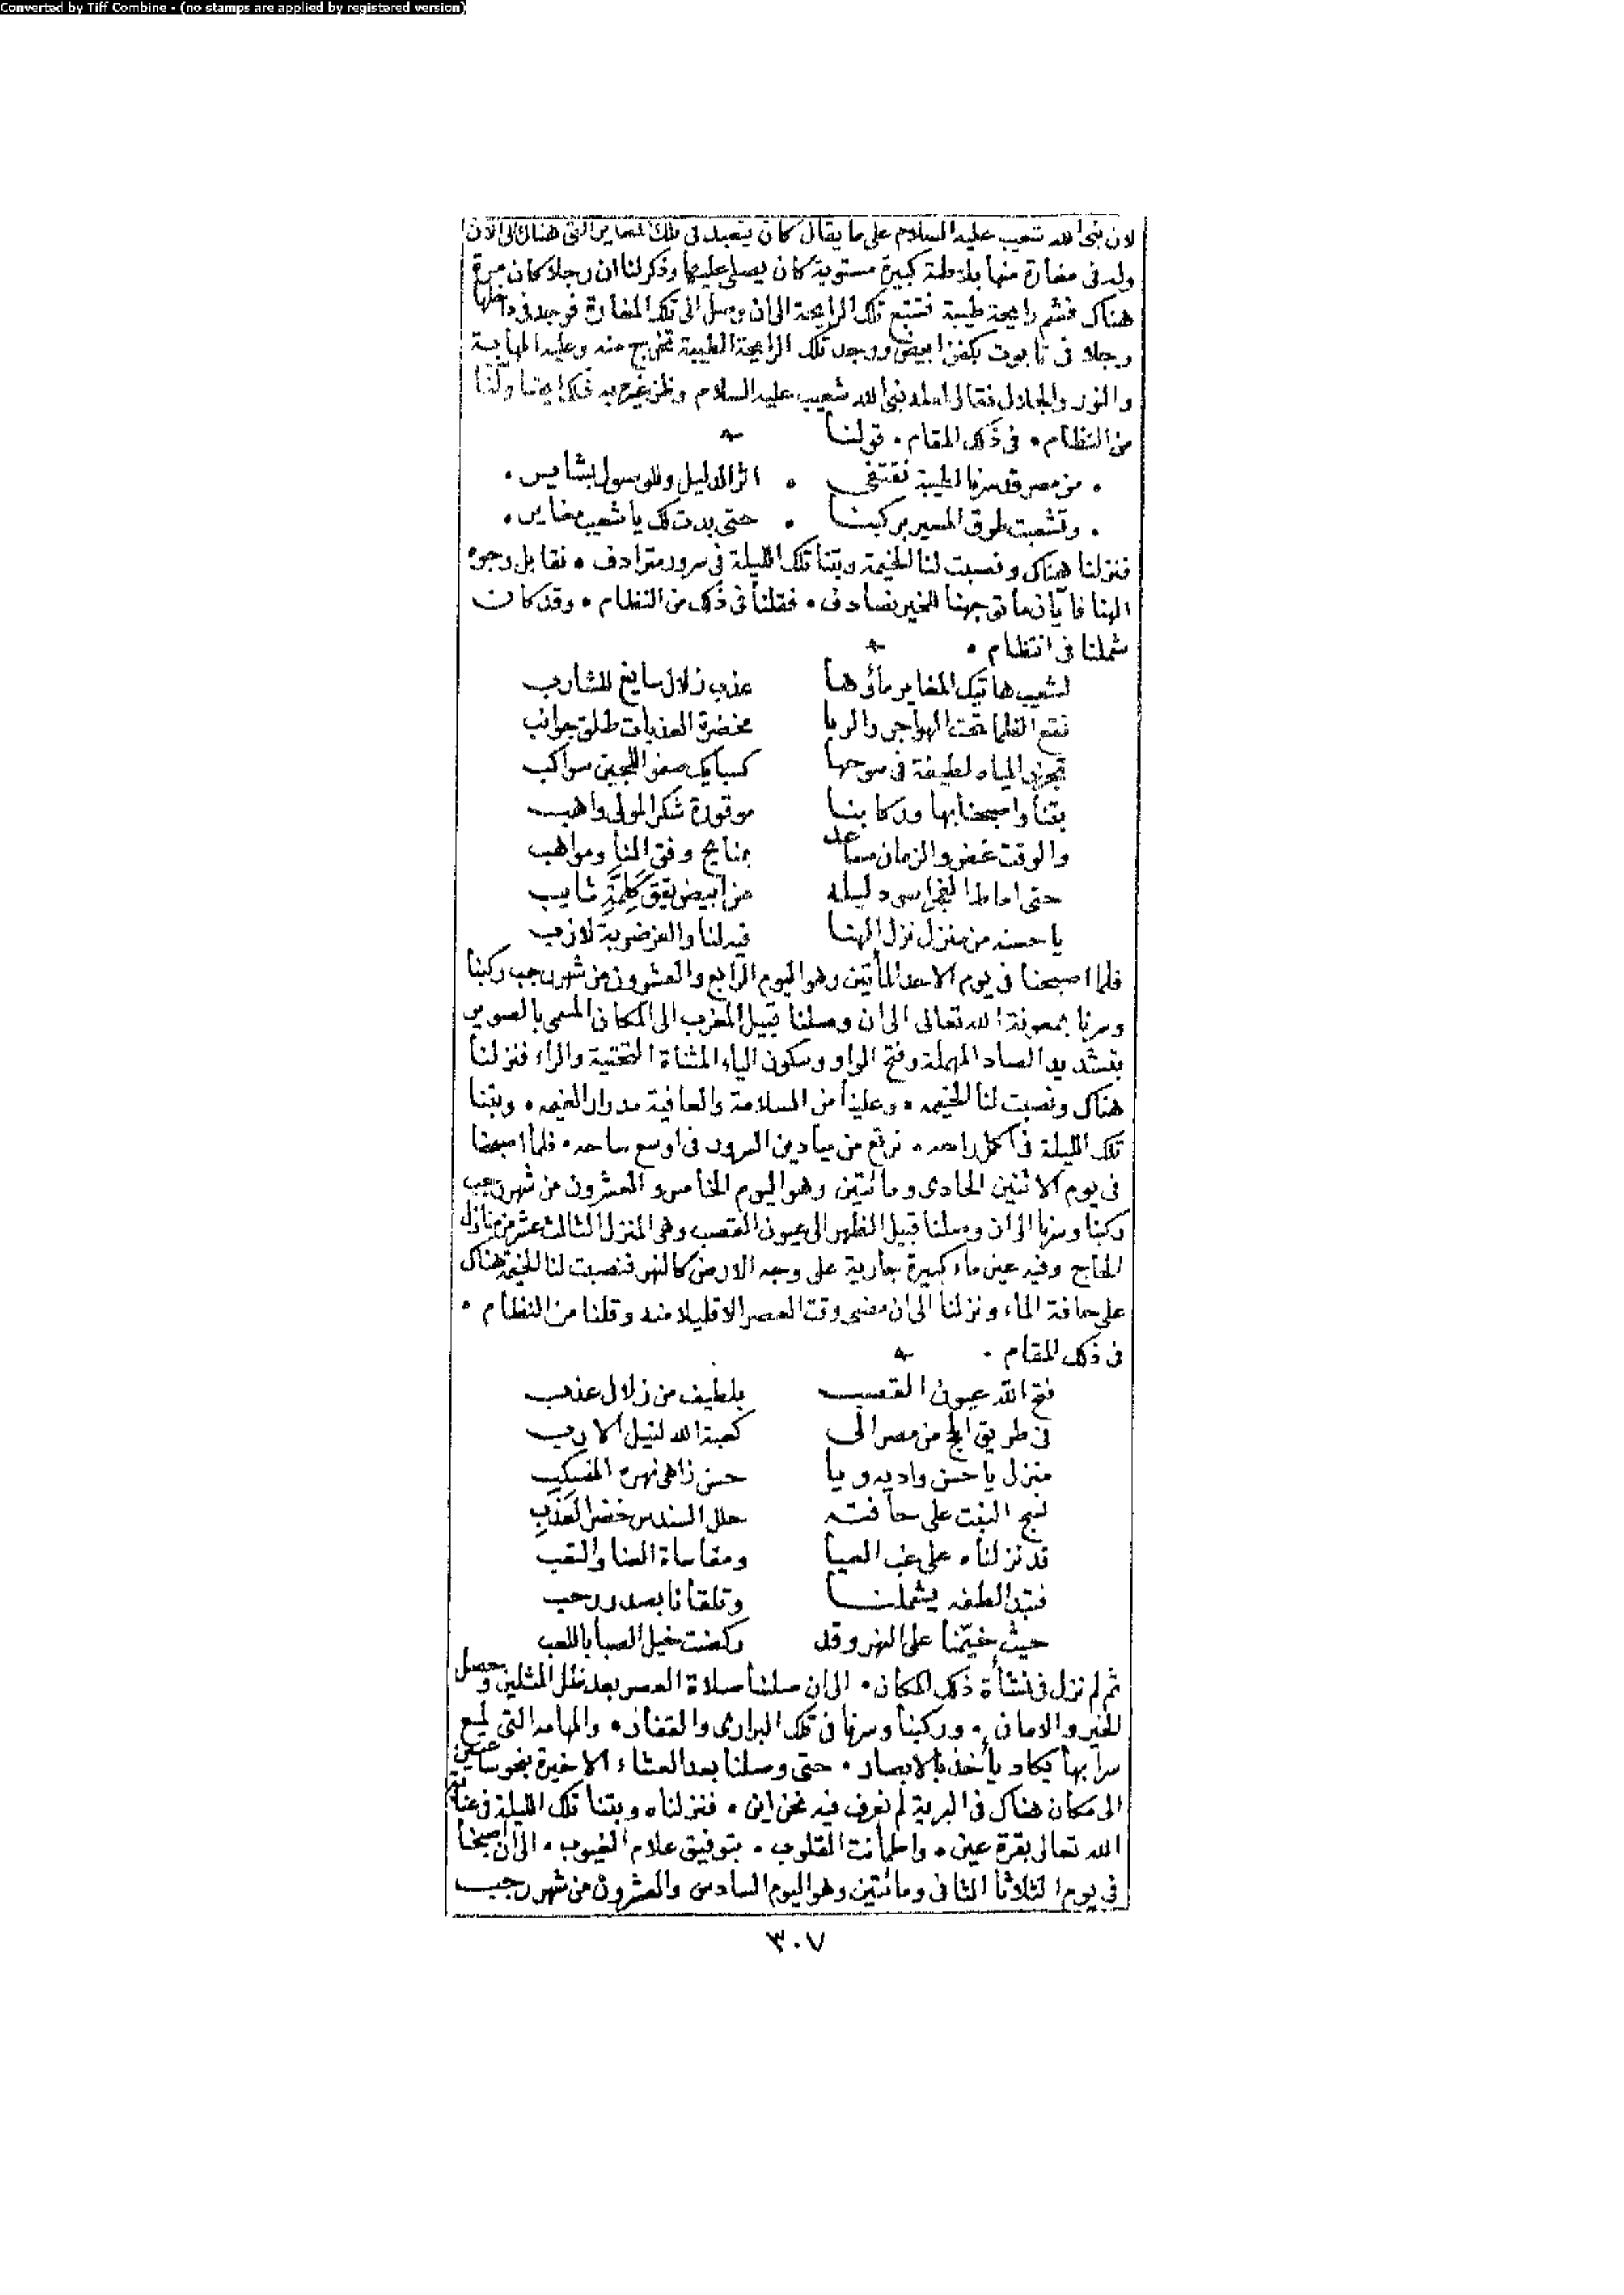 Converted by Tiff Combine - (no stamps are applied by registered version)
لان نبى الله شعيب عليه السلام على ما يقال كان يتعبد فى تلك المغاير التى هناك الى الان
وله فى مغارة منها بلاطة كبيرة مستوية كان يصلى عليها وذكر لنا ان رجلا كان مرة
هناك فشم رايحة طيبة فتتبع تلك الرايحة الى ان وصل الى تلك المغارة فوجد فى داخلها
رجلا فى تابوت بكفن ابيض ووجد تلك الرايحة الطيبة تخرج منه وعليه المهابة
والنور والجلال فقال لعله نبى الله شعيب عليه السلام
من النظام • فى ذلك المقام • قولنا
• من مصر قد سرنا لطيبة نقتفى • اثر الدليل وللوسول بشاير •
• وتشعبت طرق المسير بركبنا • حتى بدت لك يا شعيب مغاير •
فنزلنا هناك ونصبت لنا الخيمة وبتنا تلك الليلة فى سرور مترادف • نقابل وجوه
الهنا فايّان ما توجهنا للخير نصادف • فقلنا فى ذلك من النظام • وقد كان
شملنا فى انتظام •
لشعيب هاتيك المغاير مائها عذب زلال سايغ للشارب
نقع الظما تحت الهواجر والربا مخضرة العذبات طلق جوانب
تجرى المياه لطيفة فى سوحها كسبايك صفو اللجين سواكب
بتنا واصبحنا بها وركابنا موقورة شكرا لمولى واهب
والوقت غض والزمان مساعد بمنايح وفق المنا ومواهب
حتى اماط الفجر اسود ليله عن ابيض يقق كلِمَّةِ شايب
يا حسنه من منزل نزل الهنا فيه لنا والعز ضربة لازب
فلما اصبحنا فى يوم الاحد المأتين وهو اليوم الرابع والعشرون من شهر رجب ركبنا
وسرنا بمعونة الله تعالى الى ان وصلنا قبيل المغرب الى المكان المسمى بالصوير
بتشديد الصاد المهملة وفتح الواو وسكون الياء المثناة التحتية والراء فنزلنا
هناك ونصبت لنا الخيمه • وعلينا من السلامة والعافية مدرار الغيمه • وبتنا
تلك الليلة فى اكمل راحه • نرتع من ميادين السرور فى اوسع ساحه • فلما اصبحنا
فى يوم الاثنين الحادى ومائتين وهو اليوم الخامس والعشرون من شهر رجب
ركبنا وسرنا الى ان وصلنا قبيل الظهر الى عيون القصب وهى المنزل الثالث عشر من منازل
الحاج وفيه عين ماء كبيرة جارية على وجه الارض كالنهر فنصبت لنا الخيمة هناك
على حافة الماء ونزلنا الى ان مضى وقت العصر الا قليلا منه وقلنا من النظام •
فى ذلك المقام •
فتح الله عيون القصب بلطيف من زلال عذب
فى طريق الحج من مصر الى كعبة الله لنيل الارب
منزل يا حسن واديه ويا حسن زاهى نهره المنسكب
نسج النبت على حافته حلل السندس خضر العذب
قد نزلناه على غب العيا ومقاساة العنا والتعب
فتبدا لطفه يشملنا وتلقانا بصدر رحب
حيث خيّمنا على النهر وقد ركضت خيل الصبا باللعب
ثم لم نزل فى نشأة ذلك المكان • الى ان صلينا صلاة العصر بعد ظل المثلين وحصل
الخير والامان • وركبنا وسرنا فى تلك البرارى والقفار • والمهامه التى لميع
سرابها يكاد يأخذ بالابصار • حتى وصلنا بعد العشاء الاخيرة بنحو ساعتين
الى مكان هناك فى البرية لم نعرف فيه نحن اين • فنزلناه وبتنا تلك الليلة فى عناية
الله تعالى بقرة عين • واطمأنت القلوب • بتوفيق علام الغيوب • الى ان اصبحنا
فى يوم الثلاثا الثانى ومائتين وهو اليوم السادس والعشرون من شهر رجب
٣٠٧